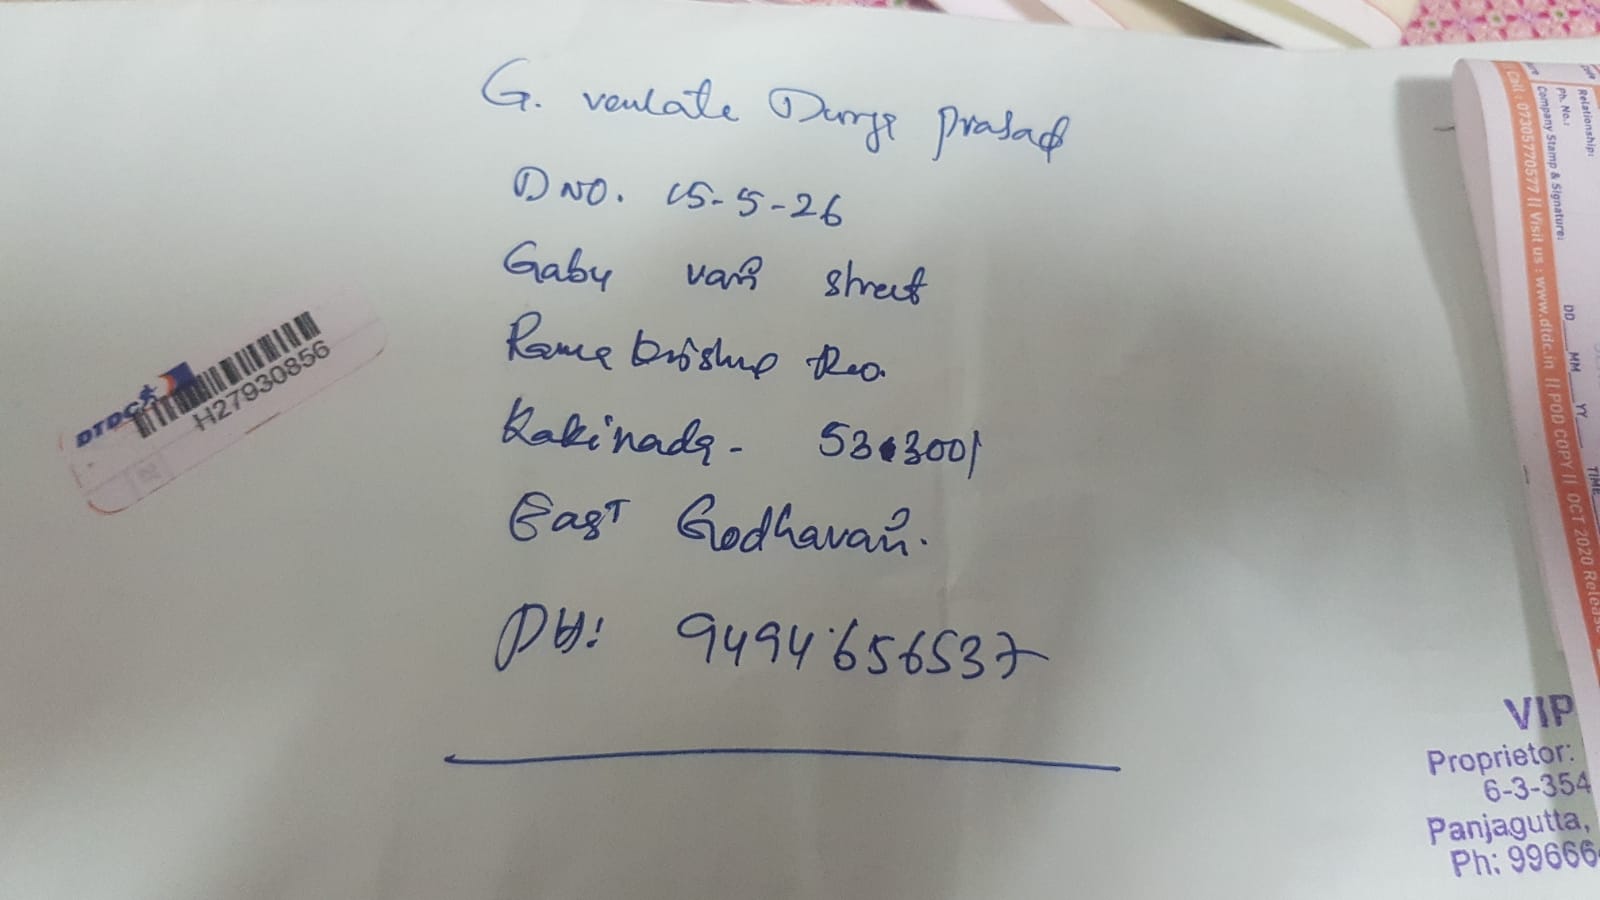 G. venkata Durga prasad
D NO. 15-5-26
Gaby vari street
Rama krishna Rao
Kakinada - 533001
East Godhavari.
PH: 9494656537
DTDC
H27930856
Relationship:
Ph. No.:
Company Stamp & Signature:
DD MM YY TIME
Call : 07305770577 || Visit us : www.dtdc.in || POD COPY || OCT 2020 Release
VIP
Proprietor:
6-3-354
Panjagutta,
Ph: 99666